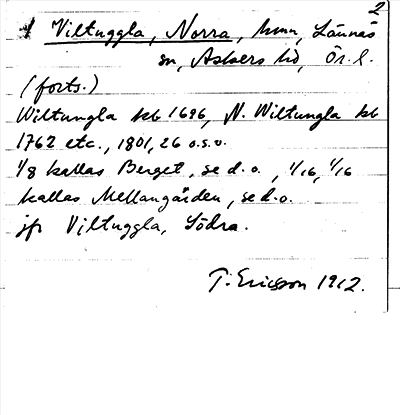 2
† Viltuggla, Norra, hmn, Lännäs
sn, Askers hd, Ör. l.
(forts.)
Wiltungla kb 1696, N. Wiltungla kb
1762 etc., 1801, 26 o.s.v.
1/8 kallas Berget, se d.o., 1/16, 1/16
kallas Mellangården, se d.o.
jfr Viltuggla, Södra.
T. Ericsson 1912.